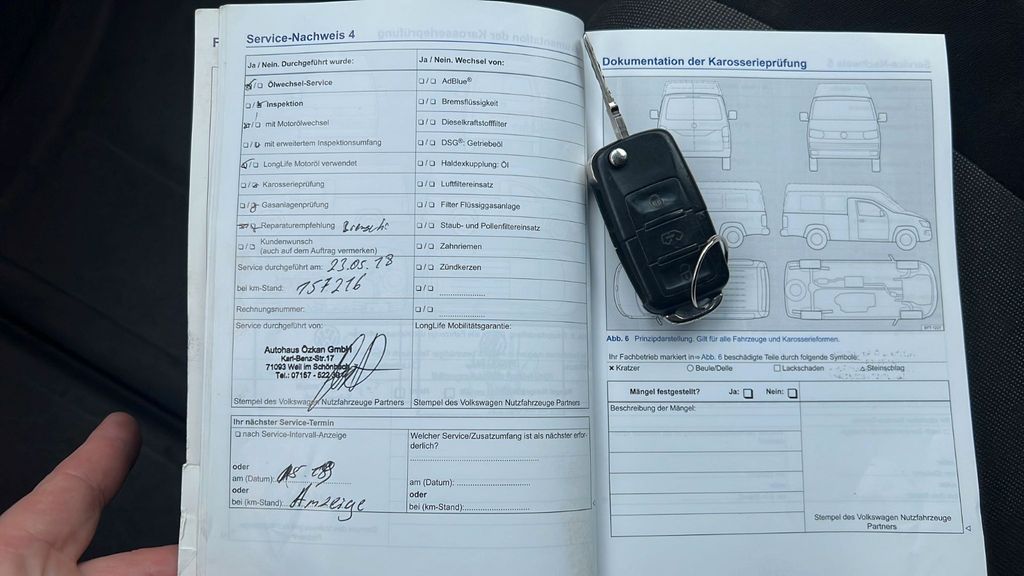 Service-Nachweis 4
Ja / Nein. Durchgeführt wurde:
Ölwechsel-Service
Inspektion
mit Motorölwechsel
mit erweitertem Inspektionsumfang
LongLife Motoröl verwendet
Karosserieprüfung
Gasanlagenprüfung
Reparaturempfehlung
Kundenwunsch
(auch auf dem Auftrag vermerken)
Service durchgeführt am: 23.05.18
bei km-Stand: 157216
Rechnungsnummer:
Service durchgeführt von:
Autohaus Özkan GmbH
Karl-Benz-Str.17
71093 Weil im Schönbuch
Tel.: 07157 - 522
Stempel des Volkswagen Nutzfahrzeuge Partners
Ja / Nein. Wechsel von:
AdBlue®
Bremsflüssigkeit
Dieselkraftstofffilter
DSG®: Getriebeöl
Haldexkupplung: Öl
Luftfiltereinsatz
Filter Flüssiggasanlage
Staub- und Pollenfiltereinsatz
Zahnriemen
Zündkerzen
LongLife Mobilitätsgarantie:
Stempel des Volkswagen Nutzfahrzeuge Partners
Ihr nächster Service-Termin
nach Service-Intervall-Anzeige
oder
am (Datum):
oder
bei (km-Stand): Anzeige
Welcher Service/Zusatzumfang ist als nächster erfor-
derlich?
am (Datum):
oder
bei (km-Stand):
Dokumentation der Karosserieprüfung
Abb. 6 Prinzipdarstellung. Gilt für alle Fahrzeuge und Karosserieformen.
Ihr Fachbetrieb markiert in ⇒ Abb. 6 beschädigte Teile durch folgende Symbole:
× Kratzer ○ Beule/Delle □ Lackschaden △ Steinschlag
Mängel festgestellt? Ja: Nein:
Beschreibung der Mängel:
Stempel des Volkswagen Nutzfahrzeuge
Partners